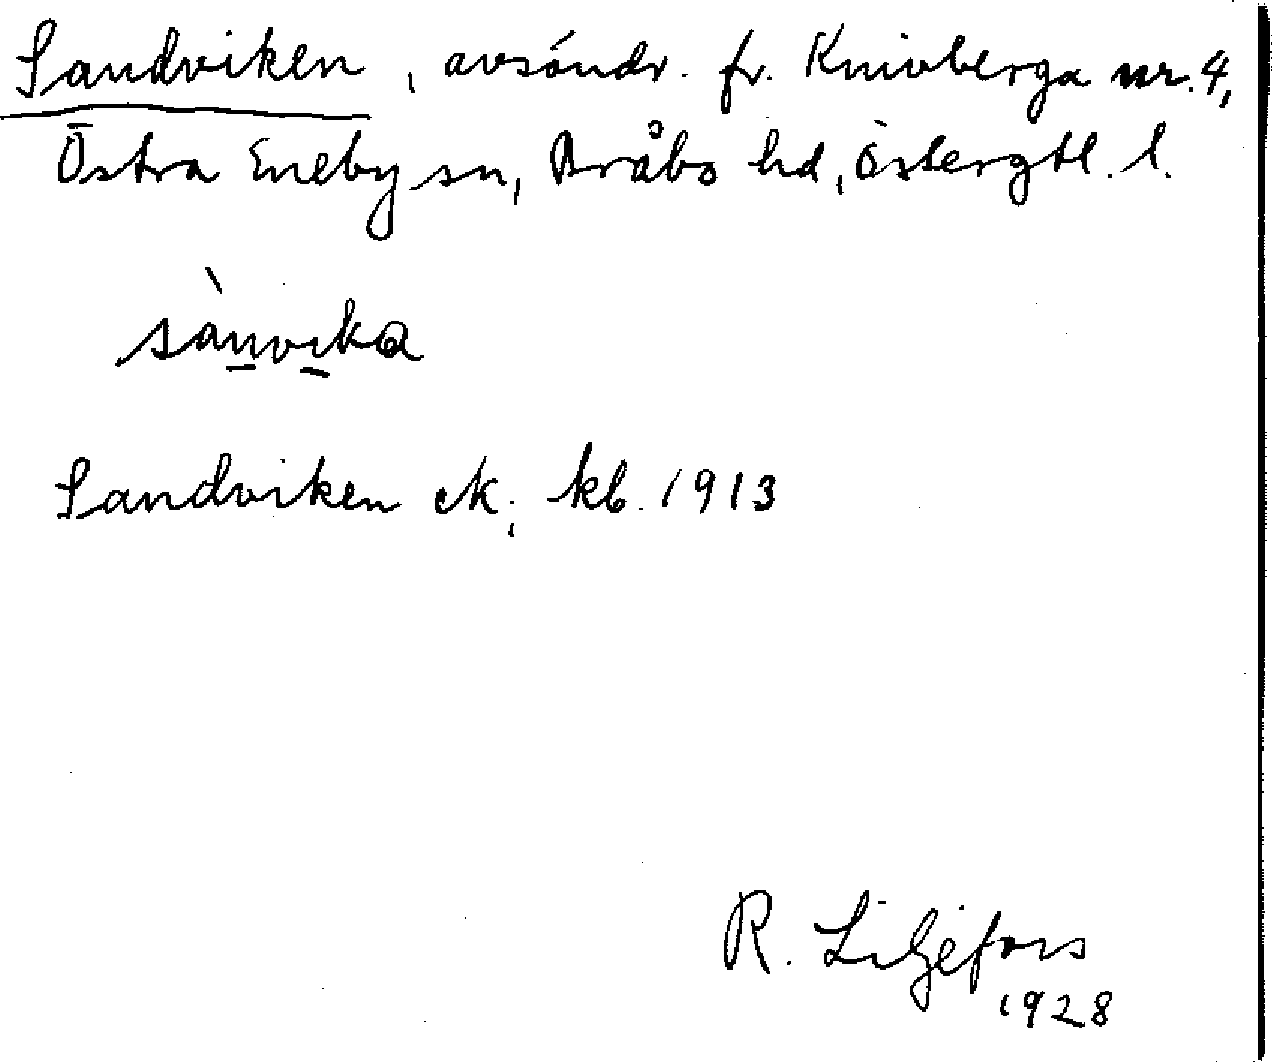 Sandviken, avsöndr. fr. Knivberga nr. 4,
Östra Eneby sn, Bråbo hd, Östergtl. l.
sànvika
Sandviken ek; kb. 1913
R. Liljefors
1928